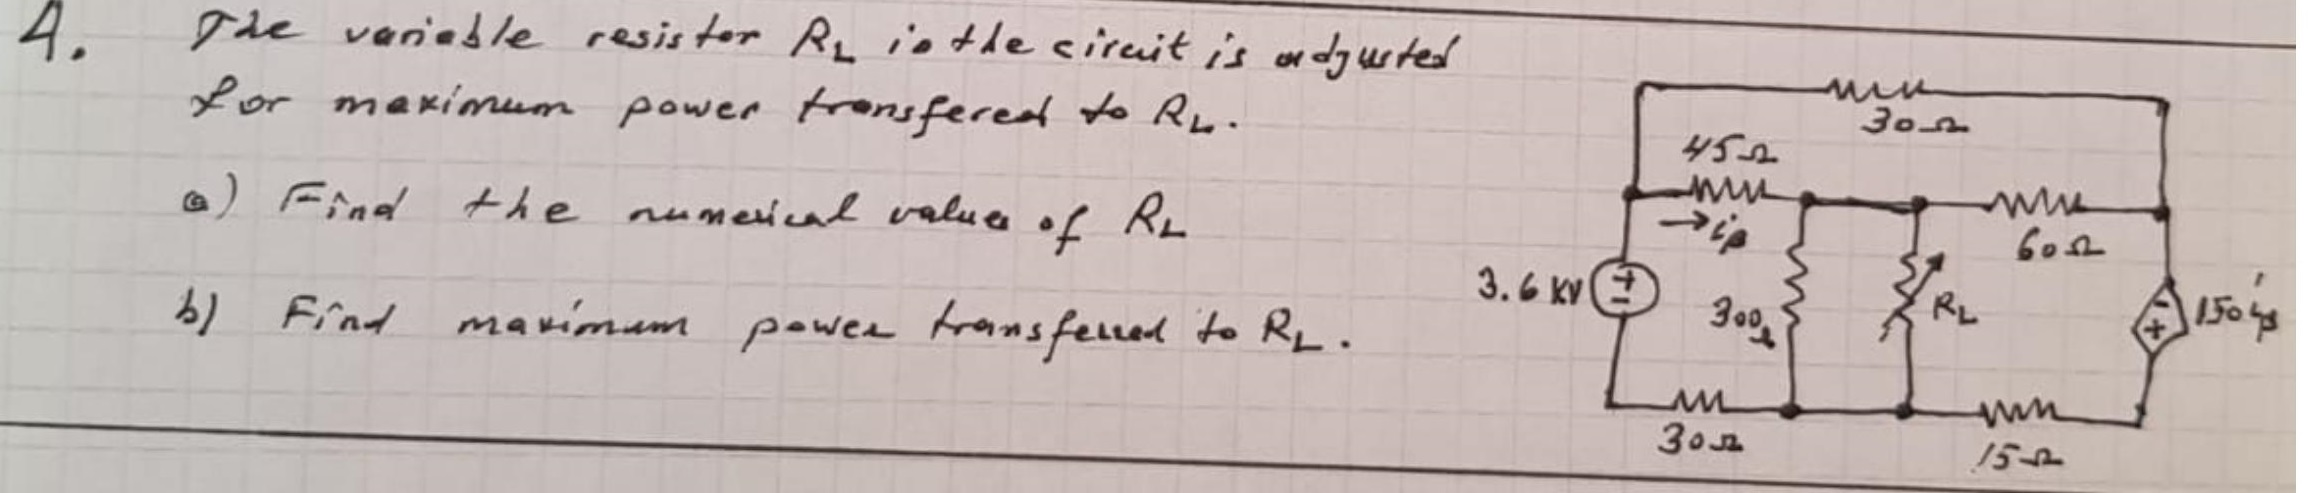 4. The variable resistor RL in the circuit is adjusted
for maximum power transfered to RL.
a) Find the numerical value of RL
b) Find maximum power transferred to RL.
30Ω
45Ω
→ iβ
60Ω
3.6 KV
+
-
300Ω
RL
-
+
150 iβ
30Ω
15Ω